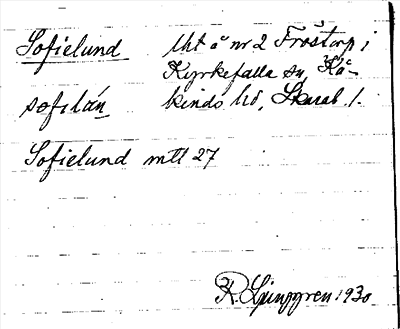 Sofielund Uht å nr 2 Fröstorp i
Kyrkefalla sn, Kå-
sofılán kinds hd, Skarab. l.
Sofielund mtl 27
R. Ljunggren 1930